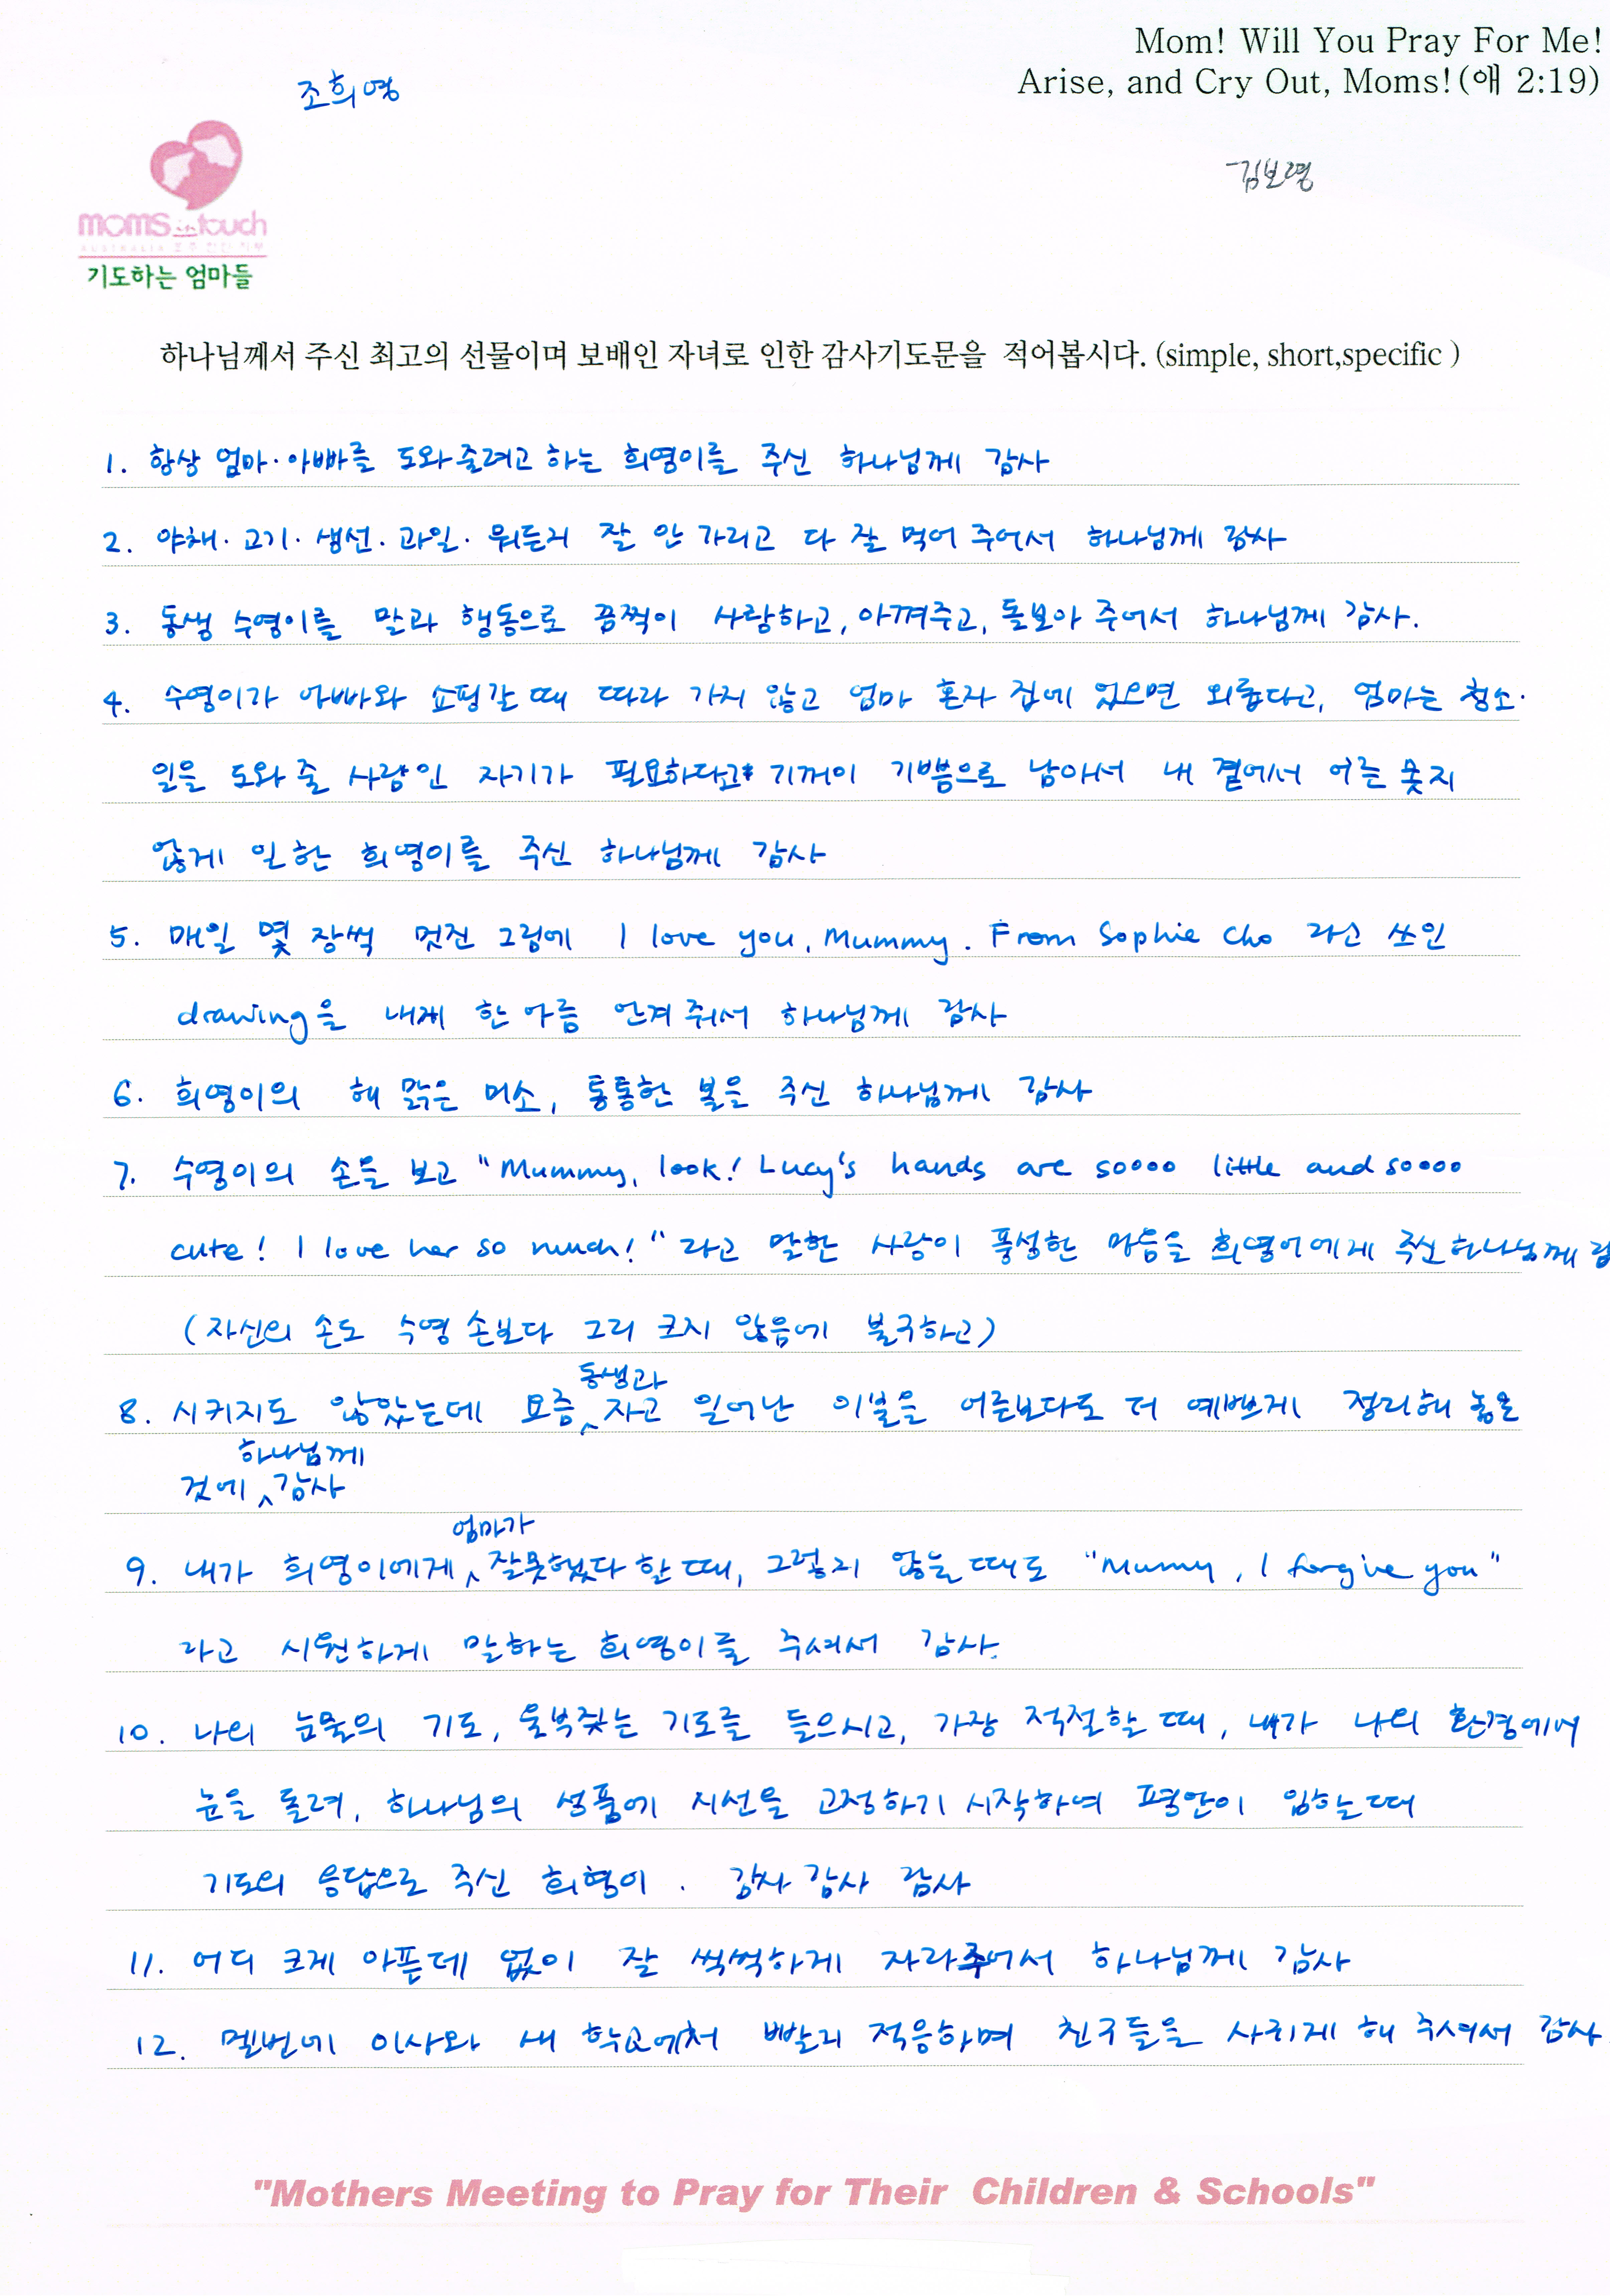 Mom! Will You Pray For Me!
조희영
Arise, and Cry Out, Moms!(애 2:19)
김보령
moms in touch
AUSTRALIA 호주한인지부
기도하는 엄마들
하나님께서 주신 최고의 선물이며 보배인 자녀로 인한 감사기도문을 적어봅시다. (simple, short,specific )
1. 항상 엄마·아빠를 도와줄려고 하는 희영이를 주신 하나님께 감사
2. 야채·고기·생선·과일·뭐든지 잘 안 가리고 다 잘 먹어 주어서 하나님께 감사
3. 동생 수영이를 말과 행동으로 끔찍이 사랑하고, 아껴주고, 돌보아 주어서 하나님께 감사.
4. 수영이가 아빠와 쇼핑갈 때 따라 가지 않고 엄마 혼자 집에 있으면 외롭다고, 엄마는 청소·
일을 도와 줄 사람인 자기가 필요하다고 기꺼이 기쁨으로 남아서 내 곁에서 어른 못지
않게 일한 희영이를 주신 하나님께 감사
5. 매일 몇 장씩 멋진 그림에 I love you, Mummy. From Sophie Cho 라고 쓰인
drawing을 내게 한아름 안겨줘서 하나님께 감사
6. 희영이의 해 맑은 미소, 통통한 볼을 주신 하나님께 감사
7. 수영이의 손을 보고 "Mummy, look! Lucy's hands are soooo little and soooo
cute! I love her so much!" 라고 말한 사랑이 풍성한 마음을 희영이에게 주신 하나님께 감
(자신의 손도 수영 손보다 그리 크지 않음에 불구하고)
동생과
8. 시키지도 않았는데 요즘 자고 일어난 이불을 어른보다도 더 예쁘게 정리해 놓은
하나님께
것에 감사
엄마가
9. 내가 희영이에게 잘못했다 할 때, 그렇지 않을 때도 "Mummy, I forgive you"
라고 시원하게 말하는 희영이를 주셔서 감사.
10. 나의 눈물의 기도, 울부짖는 기도를 들으시고, 가장 적절할 때, 내가 나의 환경에서
눈을 돌려, 하나님의 성품에 시선을 고정하기 시작하여 평안이 임하는 때
기도의 응답으로 주신 희영이. 감사 감사 감사
11. 어디 크게 아픈데 없이 잘 씩씩하게 자라주어서 하나님께 감사
12. 멜번에 이사와 새 학교에서 빨리 적응하며 친구들을 사귀게 해 주셔서 감사.
"Mothers Meeting to Pray for Their Children & Schools"